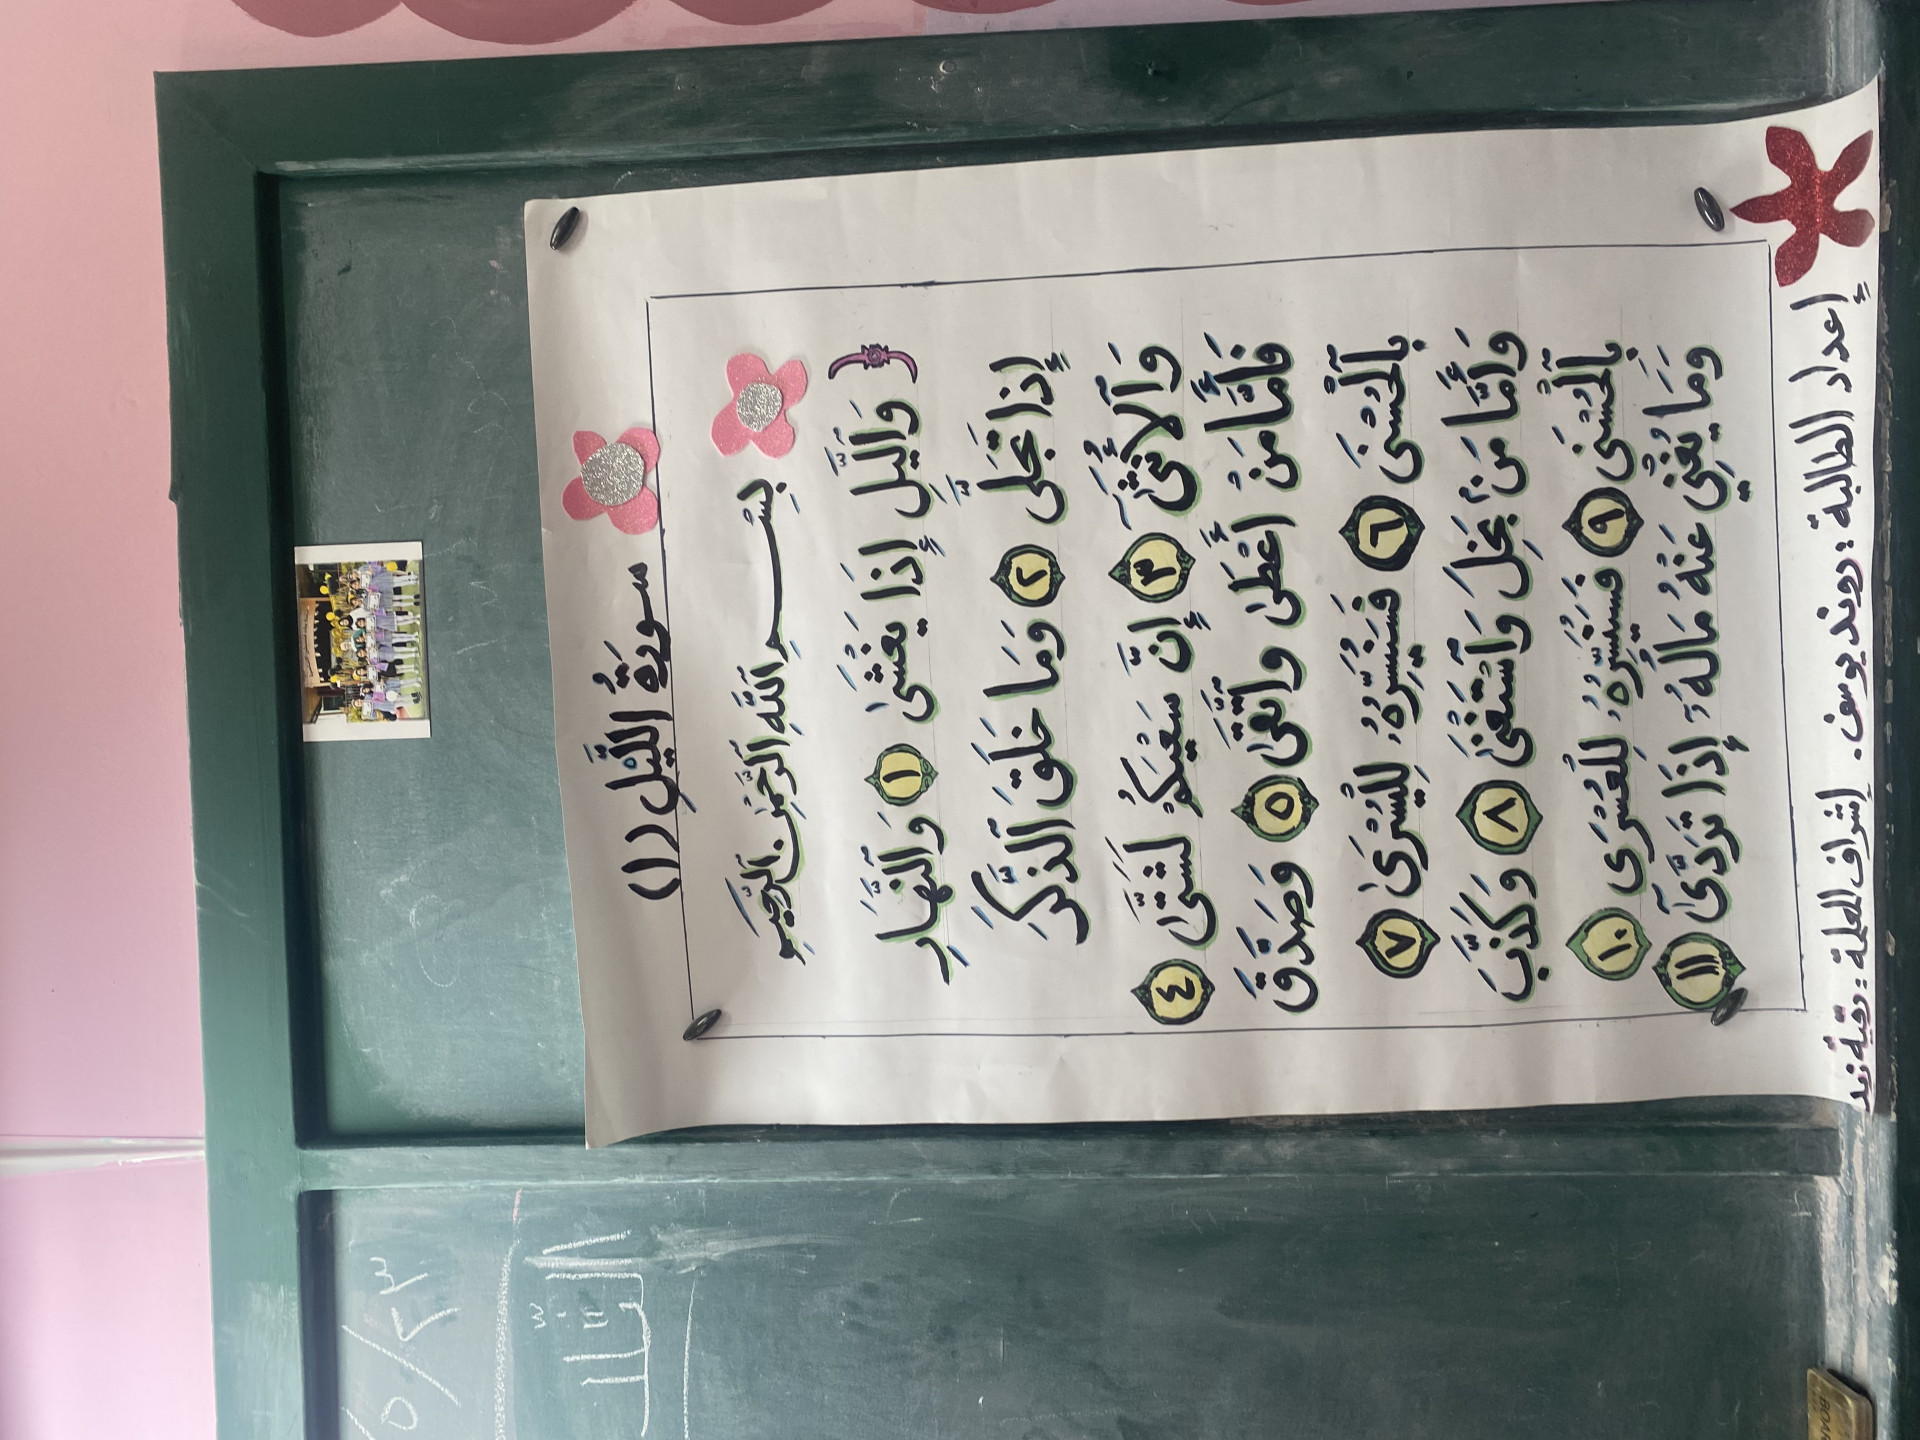 سورَةُ اللَّيْلِ (١)
بِسْمِ ٱللَّهِ ٱلرَّحْمَٰنِ ٱلرَّحِيمِ
﴿ وَٱلَّيْلِ إِذَا يَغْشَىٰ ١ وَٱلنَّهَارِ
إِذَا تَجَلَّى ٢ وَمَا خَلَقَ ٱلذَّكَرَ
وَٱلْأُنثَىٰٓ ٣ إِنَّ سَعْيَكُمْ لَشَتَّىٰ ٤
فَأَمَّا مَنْ أَعْطَىٰ وَٱتَّقَىٰ ٥ وَصَدَّقَ
بِٱلْحُسْنَىٰ ٦ فَسَنُيَسِّرُهُۥ لِلْيُسْرَىٰ ٧
وَأَمَّا مَنۢ بَخِلَ وَٱسْتَغْنَىٰ ٨ وَكَذَّبَ
بِٱلْحُسْنَىٰ ٩ فَسَنُيَسِّرُهُۥ لِلْعُسْرَىٰ ١٠
وَمَا يُغْنِى عَنْهُ مَالُهُۥٓ إِذَا تَرَدَّىٰٓ ١١
إعداد الطالبة : روند يوسف . إشراف المعلمة : رقية زيد
٢٣/٥
BOARD